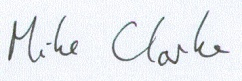 Mike Clarke